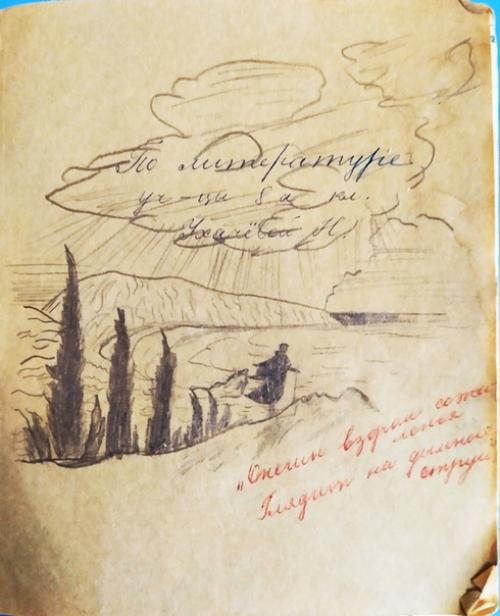 По литературе
уч-цы 8 а кл.
Ухалёвой Н.
„Онегин взором сожа
ленья
Глядит на дымные
струи